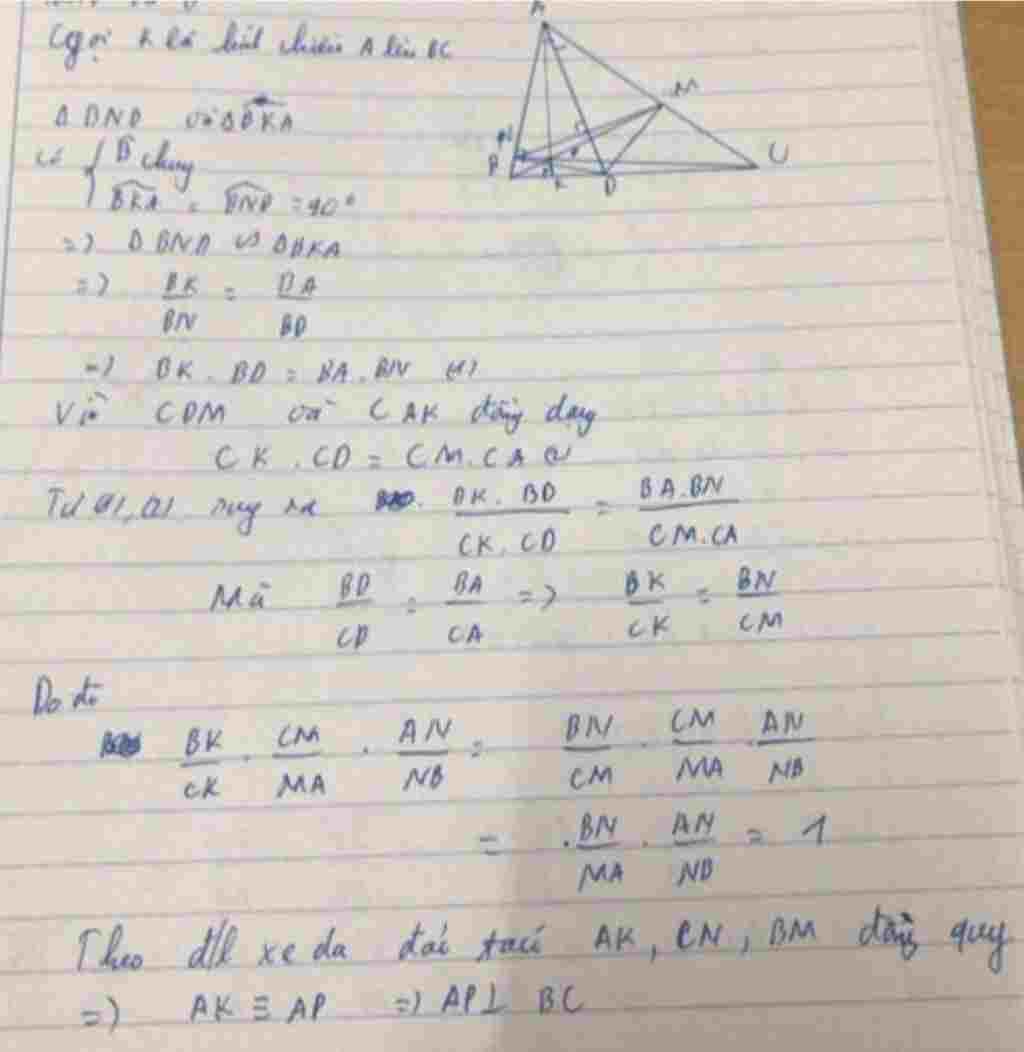 Gọi K là hình chiếu A lên BC
A
M
N
B
K
D
C
Δ BND và Δ BKA
có { B̂ chung
BKA = BND = 90°
=) Δ BND ∽ Δ BKA
=) BK/BN = BA/BD
=) BK . BD = BA . BN (1)
Vì CDM và CAK đồng dạng
CK . CD = CM . CA (2)
Từ (1), (2) suy ra BK . BD / CK . CD = BA . BN / CM . CA
Mà BD/CD = BA/CA => BK/CK = BN/CM
Do đó
BK/CK . CM/MA . AN/NB = BN/CM . CM/MA . AN/NB
= . BN/MA . AN/NB = 1
Theo đ/l xe da đảo AK, CN, BM đồng quy
=) AK ≡ AP =) AP ⊥ BC